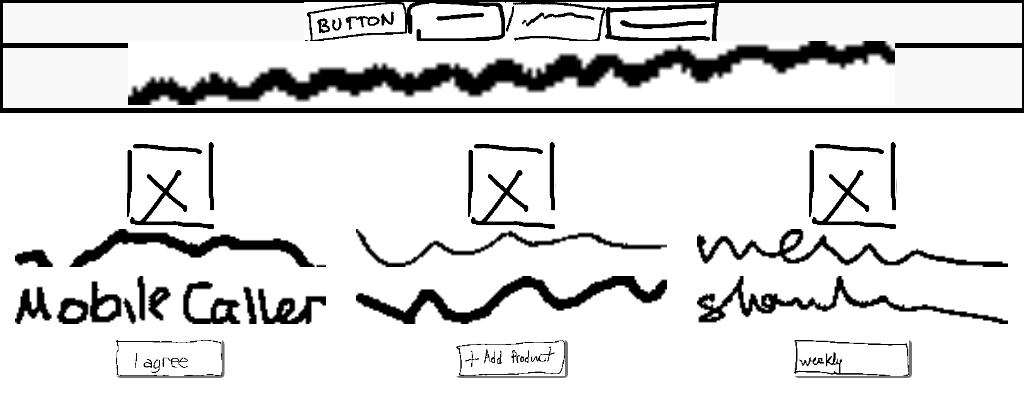 BUTTON
Mobile Caller
I agree
+ Add Product
weekly